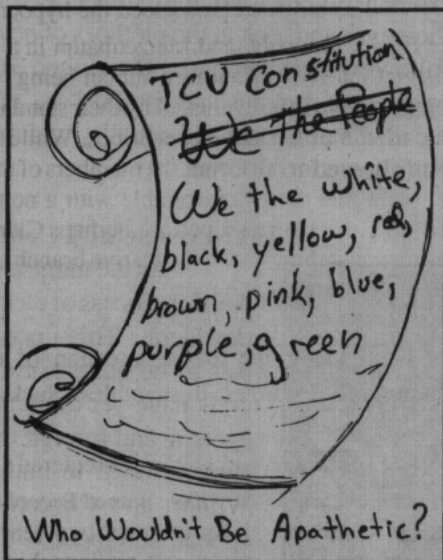 TCU Constitution
We The People
We the white,
black, yellow, red,
brown, pink, blue,
purple, green
Who Wouldn't Be Apathetic?